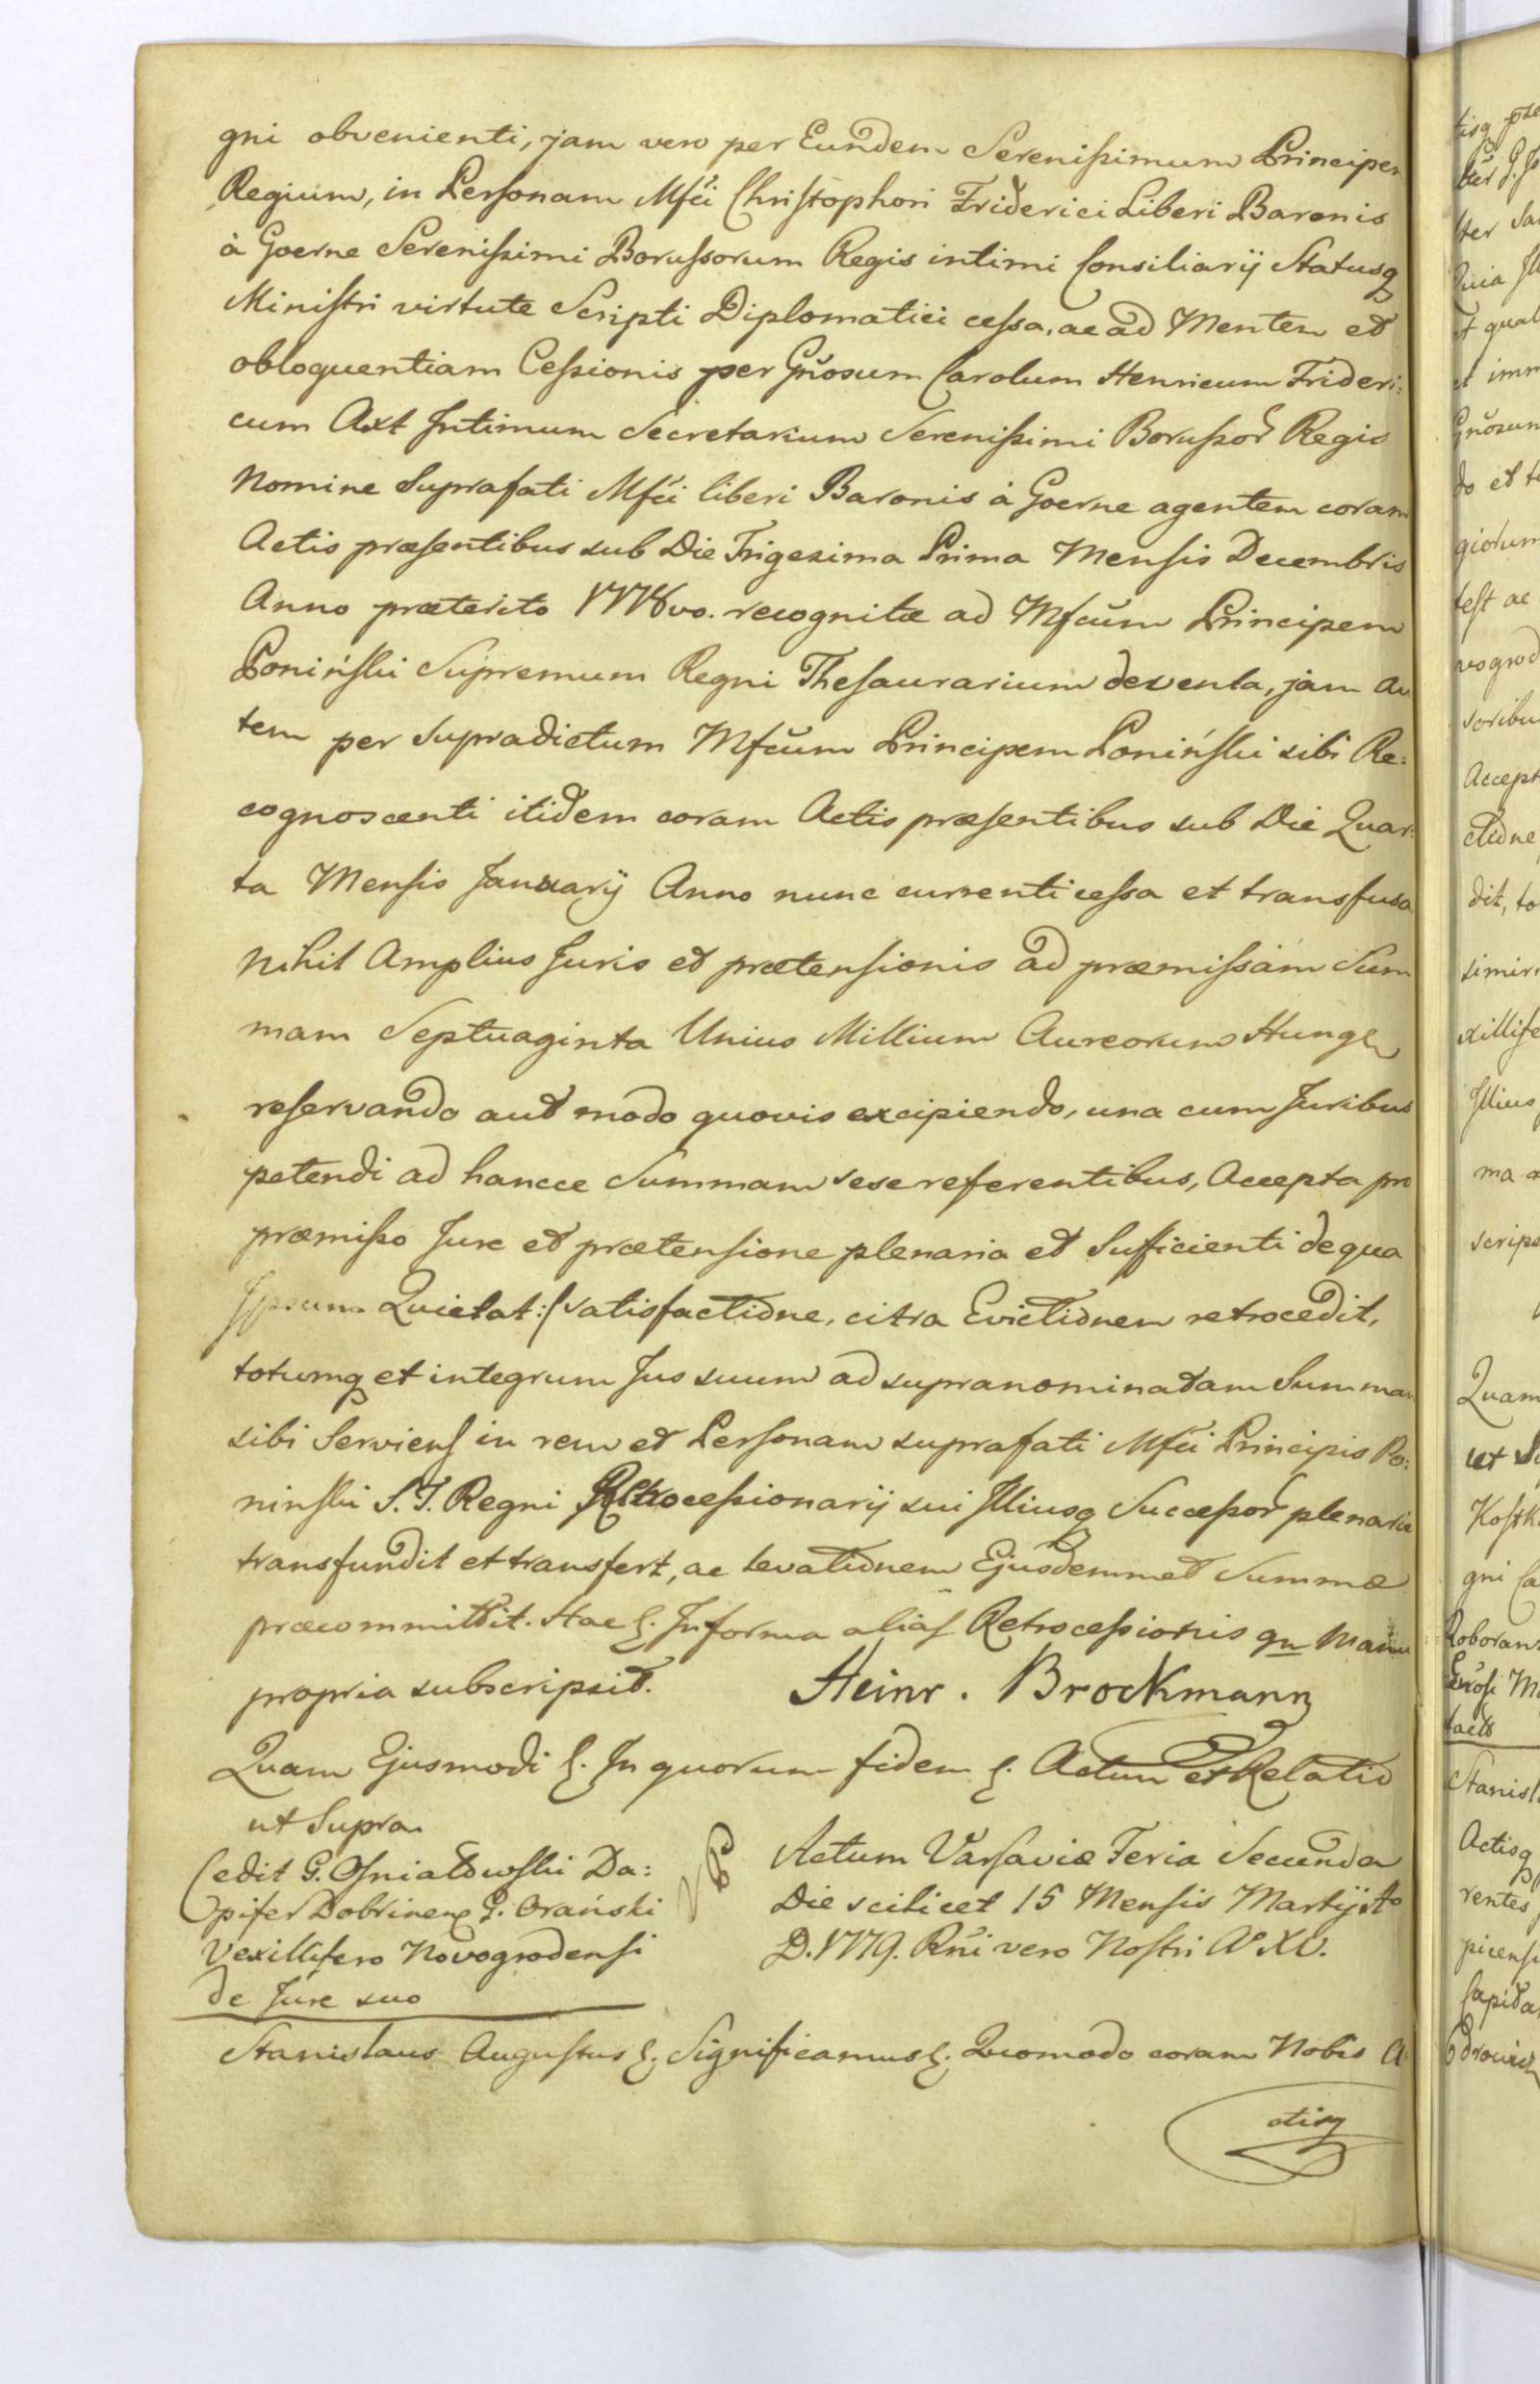 gni obvenienti, jam vero per Eundem Serenissimum Principem
Regium, in Personam Mfci Christophori Friderici Liberi Baronis
à Goerne Serenissimi Borussorum Regis intimi Consiliarij Statusq
Ministri virtute Scripti Diplomatici cessa, ac ad Mentem et
obloquentiam Cessionis per Gnosum Carolum Henricum Frideri:
cum Axt Intimum Secretarium Serenissimi Borussor Regis
Nomine Suprafati Mfci liberi Baronis à Goerne agentem coram
Actis præsentibus sub Die Trigesima Prima Mensis Decembris
Anno præterito 1778vo. recognitæ ad Mfcum Principem
Poniński Supremum Regni Thesaurarium deventa, jam Au
tem per Supradictum Mfcum Principem Poniński sibi Re:
cognoscenti itidem coram Actis præsentibus sub Die Quar:
ta Mensis Januarij Anno nunc currenti cessa et transfusa
Nihil Amplius Juris et prætensionis ad præmissam Sum
mam Septuaginta Unius Millium Aureorum Hung
reservando aut modo quovis excipiendo, una cum Juribus
petendi ad hancce Summam sese referentibus, Accepta pro
præmisso Jure et prætensione plenaria et Sufficienti de qua
Ipsum Quietat:/ satisfactione, citra Evictionem retrocedit,
totumq et integrum Jus suum ad supranominatam Summam
sibi Serviens in rem et Personam suprafati Mfci Principis Po:
ninski S. T. Regni Retrocessionarij sui Illiusq Successor plenarie
transfundit et transfert, ac levationem Ejusdemmet Summæ
præcommittit. Hac &. In forma alias Retrocessionis qn Manu
propria subscripsit. Heinr. Brockmann
Quam Ejusmodi &. In quorum fidem &. Actum et Relatio
ut Supra.
Cedit G. Ośniałowski Da:
pifer Dobrinen G. Orański
Vexillifero Novogrodensi
de Jure suo
Actum Varsaviæ Feria Secunda
Die scilicet 15 Mensis Martij Ao
D. 1779. Rni vero Nostri Ao XV.
Stanislaus Augustus &. Significamus &. Quomodo coram Nobis A:
ctisq